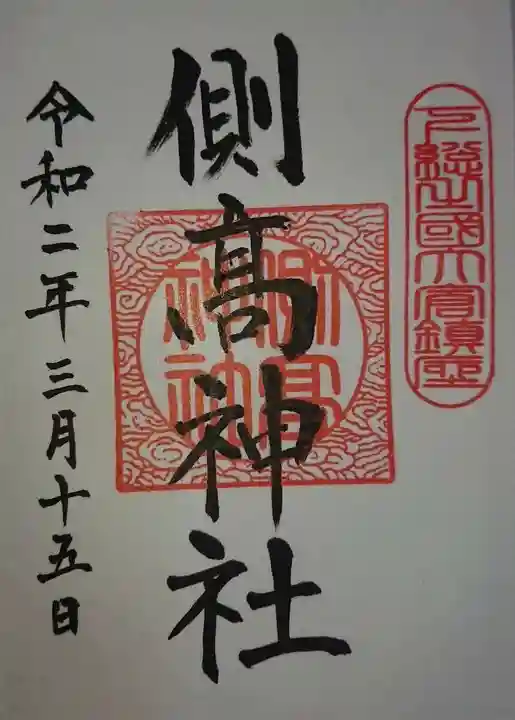 下総之國大倉鎮座
側髙神社
側高神社
令和二年三月十五日